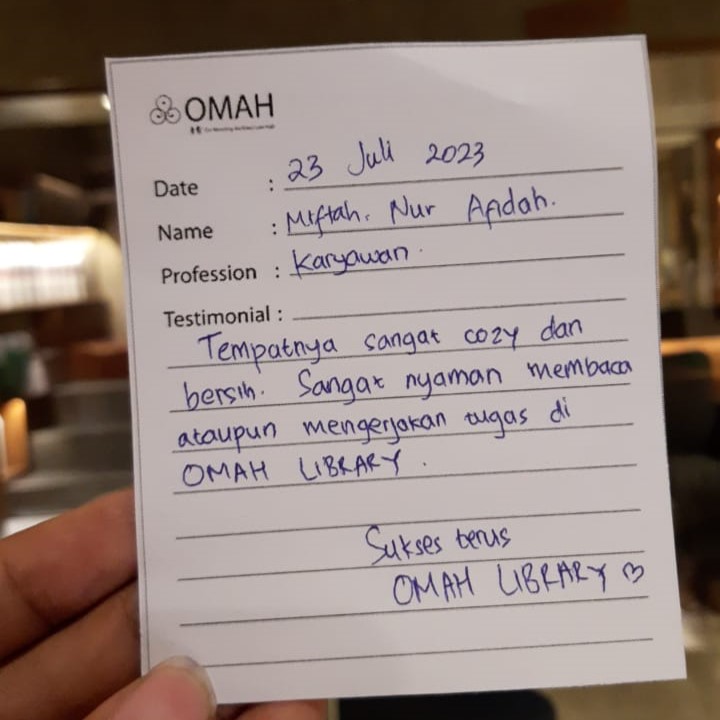 OMAH
Date : 23 Juli 2023
Name : Miftah. Nur Afidah.
Profession : Karyawan.
Testimonial :
Tempatnya sangat cozy dan
bersih. Sangat nyaman membaca
ataupun mengerjakan tugas di
OMAH LIBRARY.
Sukses terus
OMAH LIBRARY ♡